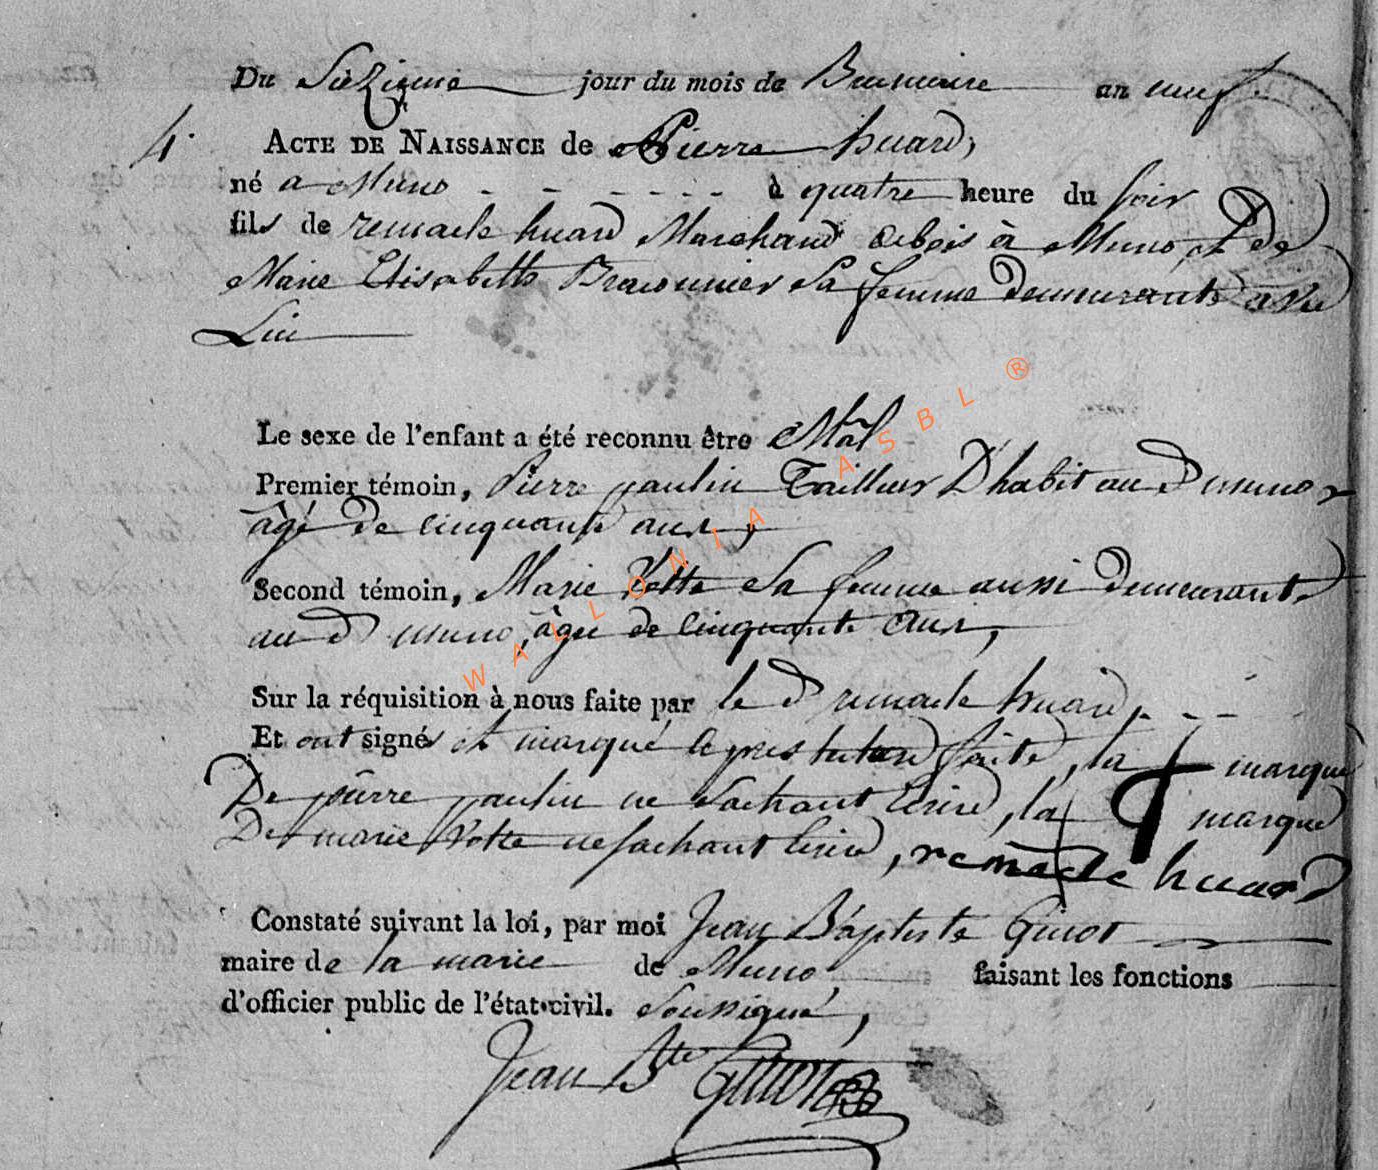 Du Seizieme jour du mois de Brumaire an neuf
4.
ACTE DE NAISSANCE de Pierre huard,
né a Muno - - - - - - à quatre heure du soir
fils de remacle huard Marchand debois à Muno et de
Marie Elisabette Braconnier Sa femme demeurante a Du
Lieu
Le sexe de l'enfant a été reconnu être Mâl
Premier témoin, Pierre paulin Tailleur D'habit au D muno
âgé de cinquante ans,
Second témoin, Marie Vette Sa femme aussi demeurante
au D muno, âgee de cinquante ans,
Sur la réquisition à nous faite par le D remacle huard, - - -
Et ont signés et marqué apres faite, la marque
De pierre paulin ne sachant Ecrire, la marque
De marie Votte ne sachant Ecrire, remacle huard
Constaté suivant la loi, par moi Jean Baptiste Guiot
maire de la marie de Muno, faisant les fonctions
d'officier public de l'état-civil. Soussigné,
Jean Bte Guiot
WALLONIA ASBL ®